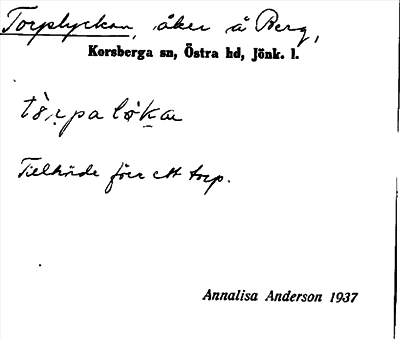 Torplyckan, åker å Berg,
Korsberga sn, Östra hd, Jönk. l.
tὸrpalökaɷ
Tillhörde förr ett torp.
Annalisa Anderson 1937